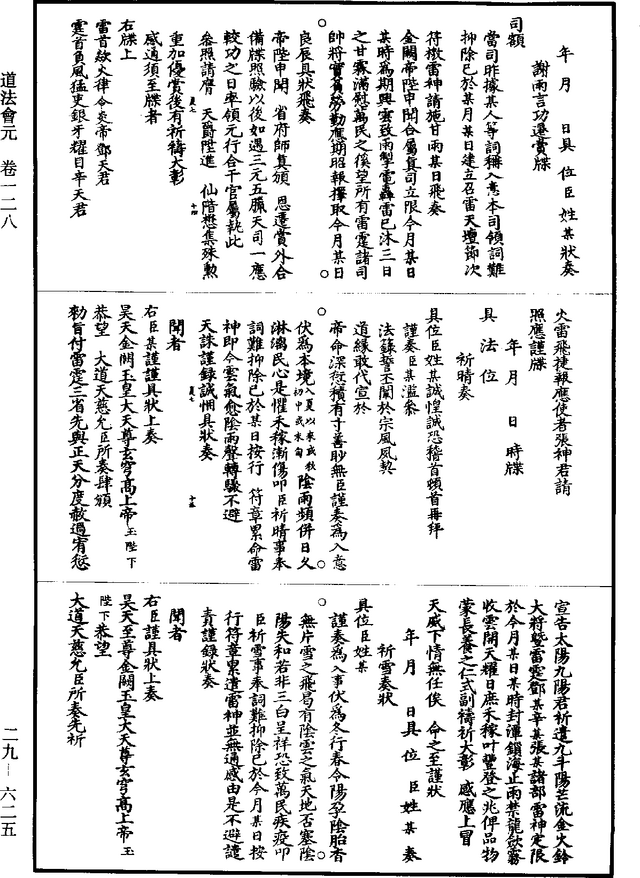 道法會元 卷一二八
二九—六二五
年 月 日具位臣姓某狀奏
謝雨言功遷賞牒
司額
當司昨據某人等詞稱入意本司領詞難
抑除已於某月某日建立召雷天壇節次
符檄雷神請施甘雨某日飛奏
金闕帝陛申聞合屬真司立限今月某日
某時為期興雲致雨掣電轟雷已沐三日
之甘霖滿慰萬民之徯望所有雷霆諸司
帥將實負勞勳應期昭報擇取今月某日
良辰具狀飛奏
帝陛申聞 省府師真頒 恩遷賞外合
備牒照驗以後如遇三元五臘天司一應
較功之日率領元行合干官屬執此
參照請膺 天爵陞進 仙階懋集殊勲
重加優賞後有祈禱大彰
感通須至牒者
右牒上
雷首欻火律令炎帝鄧天君
霆首負風猛吏銀牙耀目辛天君
火雷飛捷報應使者張神君請
照應謹牒
年 月 日 時牒
具 法 位
祈晴奏
具位臣姓某誠惶誠恐稽首頓首再拜
謹奏臣某濫叅
法籙誓丕闡於宗風夙契
道緣敢代宣於
帝命深愆積有寸善眇無臣謹奏為入意
伏為本境入夏以來或秋初中或末旬陰雨頻併日久
淋漓民心是懼禾稼漸傷叩臣祈晴事奉
詞難抑除已於某日按行 符章累命雷
神即今雲氣愈陰雨聲轉驟不避
天誅謹錄誠悃具狀奏
聞者
右臣某謹謹具狀上奏
昊天金闕玉皇大天尊玄穹高上帝玉陛下
恭望 大道天慈允臣所奏肆頒
勑旨付雷霆三省先與正天分度赦過宥愆
宣告太陽九陽君祈遣九斗陽芒流金火鈴
大將暨雷霆鄧某辛某張某諸部雷神定限
於今月某日某時封潭鎖海止雨禁龍歛霧
收雲開天耀日庶禾稼叶豐登之兆俾品物
蒙長養之仁式副禱祈大彰 感應上冒
天威下情無任俟 命之至謹狀
年 月 日具 位 臣 姓 某 奏
祈雪奏狀
具位臣姓某
謹奏為入事伏為冬行春令陽孕陰胎杳
無片雪之飛曷有陰雲之氣天地否塞陰
陽失和若非三白呈祥恐致萬民疾疫叩
臣祈雪事奉詞難抑除已於今月某日按
行符章累遣雷神並無通感由是不避譴
責謹錄狀奏
聞者
右臣謹具狀上奏
昊天至尊金闕玉皇大天尊玄穹高上帝玉
陛下恭望
大道天慈允臣所奏先祈